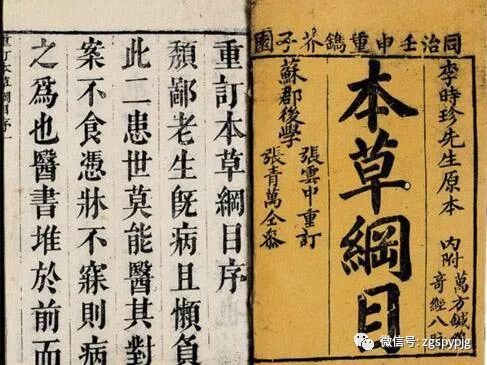 同治壬申重鐫芥子園
李時珍先生原本
內附萬方鍼線
奇經八脈
本草綱目
張雲中重訂
張青萬仝參
蘇郡後學
重訂本草綱目序
頹鄙老生旣病且懶負
此二患世莫能醫其對
案不食憑牀不寐則病
之爲也醫書堆於前而
重訂本草綱目序
微信号: zgspypjg